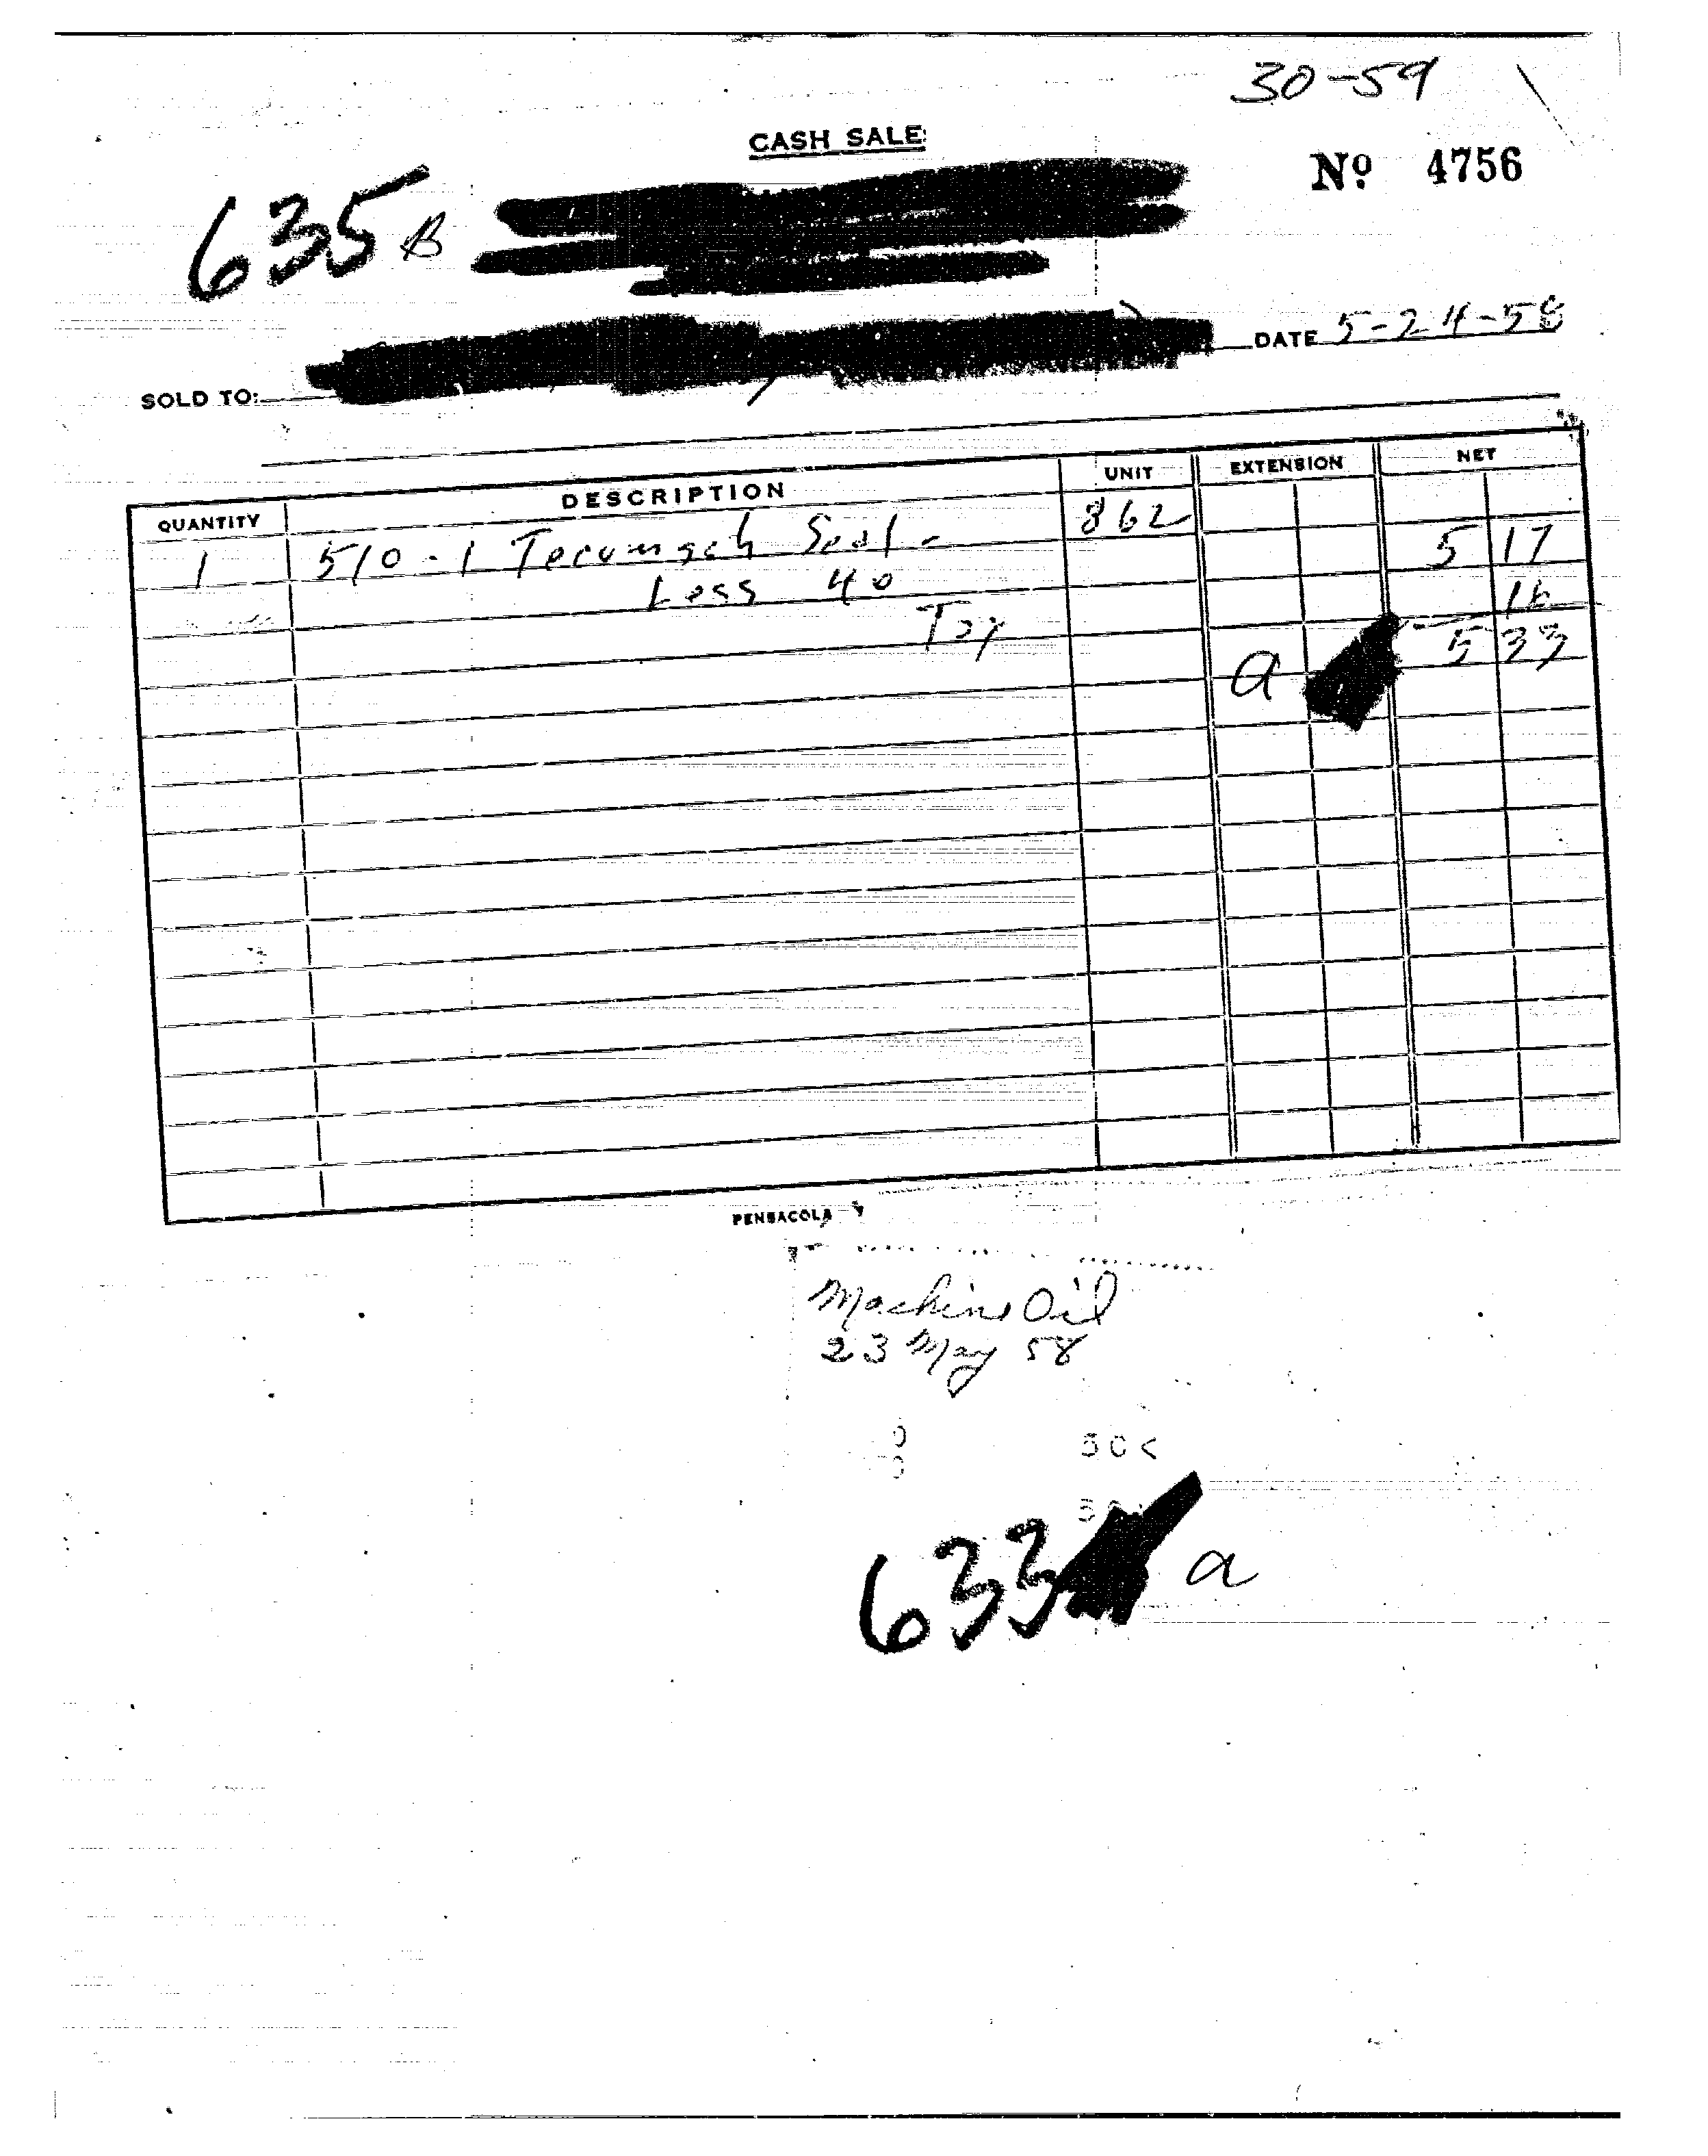 30-59
CASH SALE
Nº 4756
635 B
DATE 5-24-58
SOLD TO:
QUANTITY DESCRIPTION UNIT EXTENSION NET
1 510-1 Tecumseh Seal - 862
Less 40 5 17
Tax 16
a 5 33
PENSACOLA
Machine Oil
23 May 58
50<
633 a